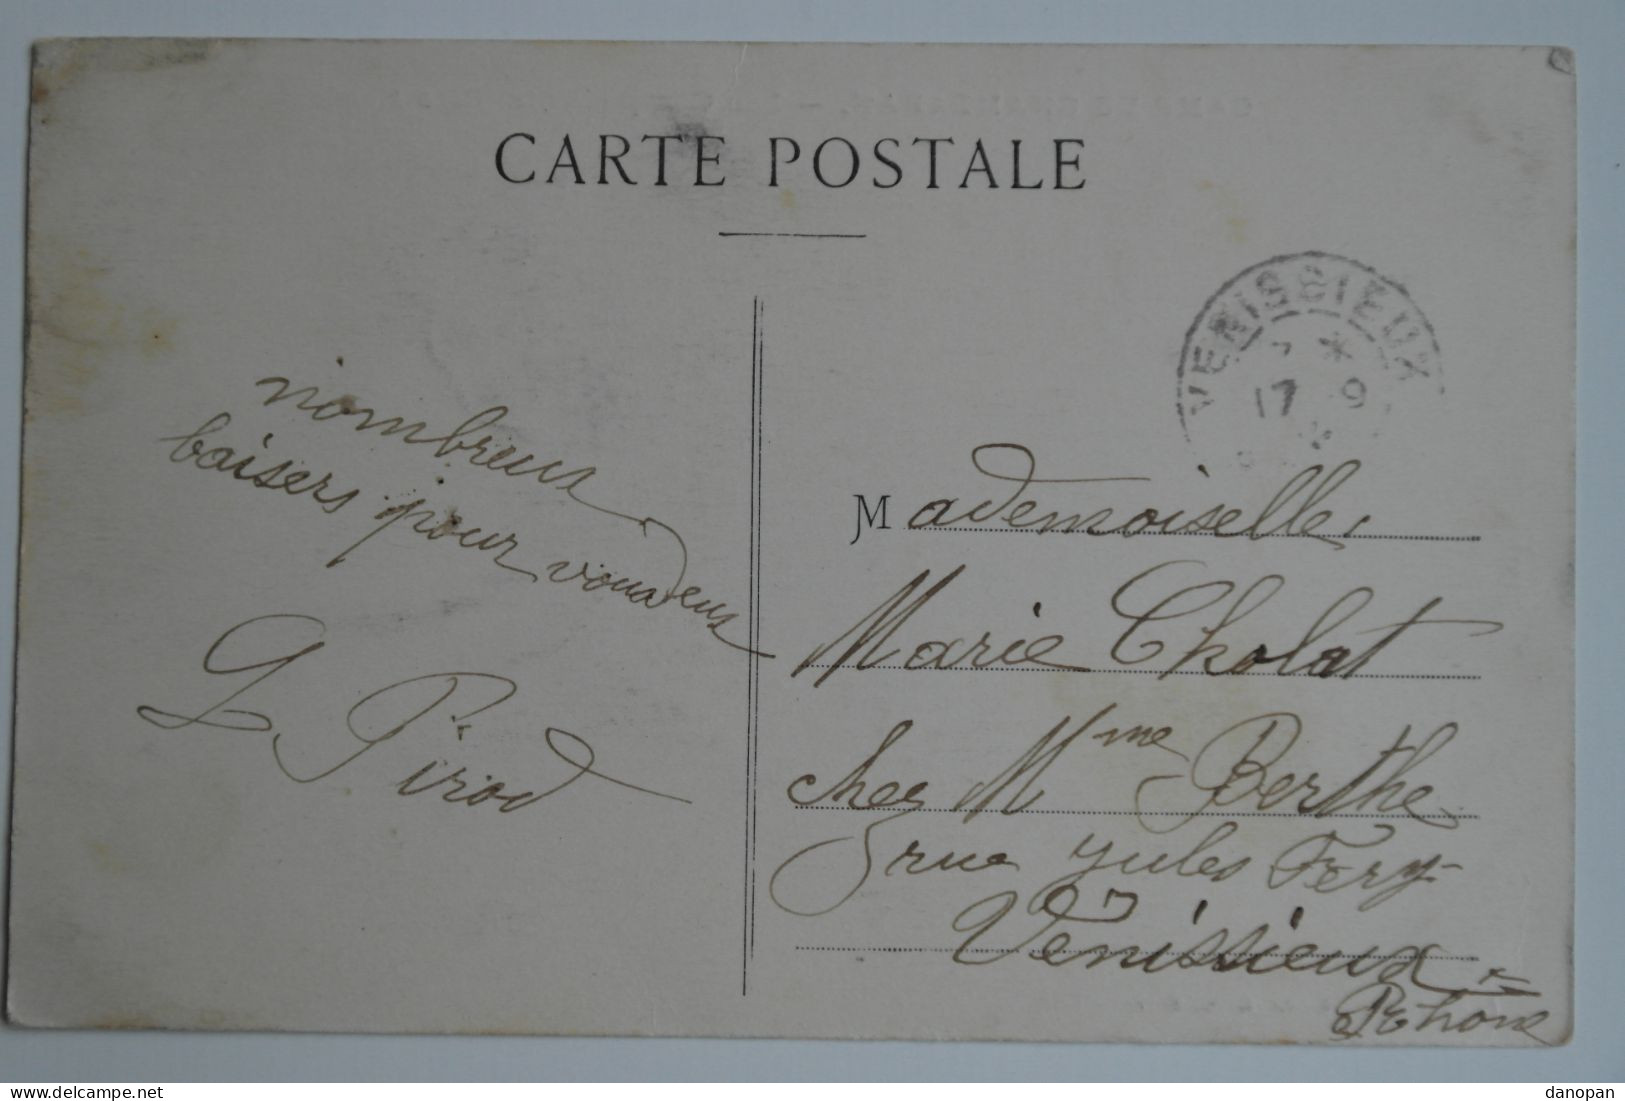 CARTE POSTALE
VENISSIEUX
17 9
nombreux
baisers pour vous deux
G Pirod
Mademoiselle
Marie Cholat
chez Mme Berthe
rue Jules Fery
Vénissieux
Rhône
danopan